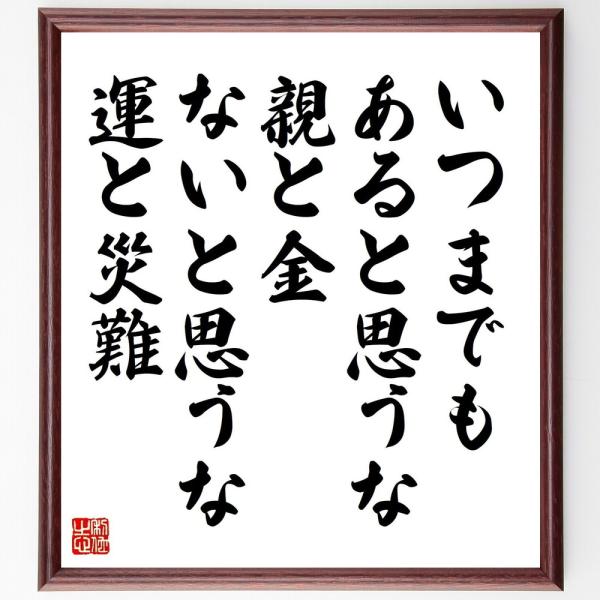 いつまでも
あると思うな
親と金
ないと思うな
運と災難